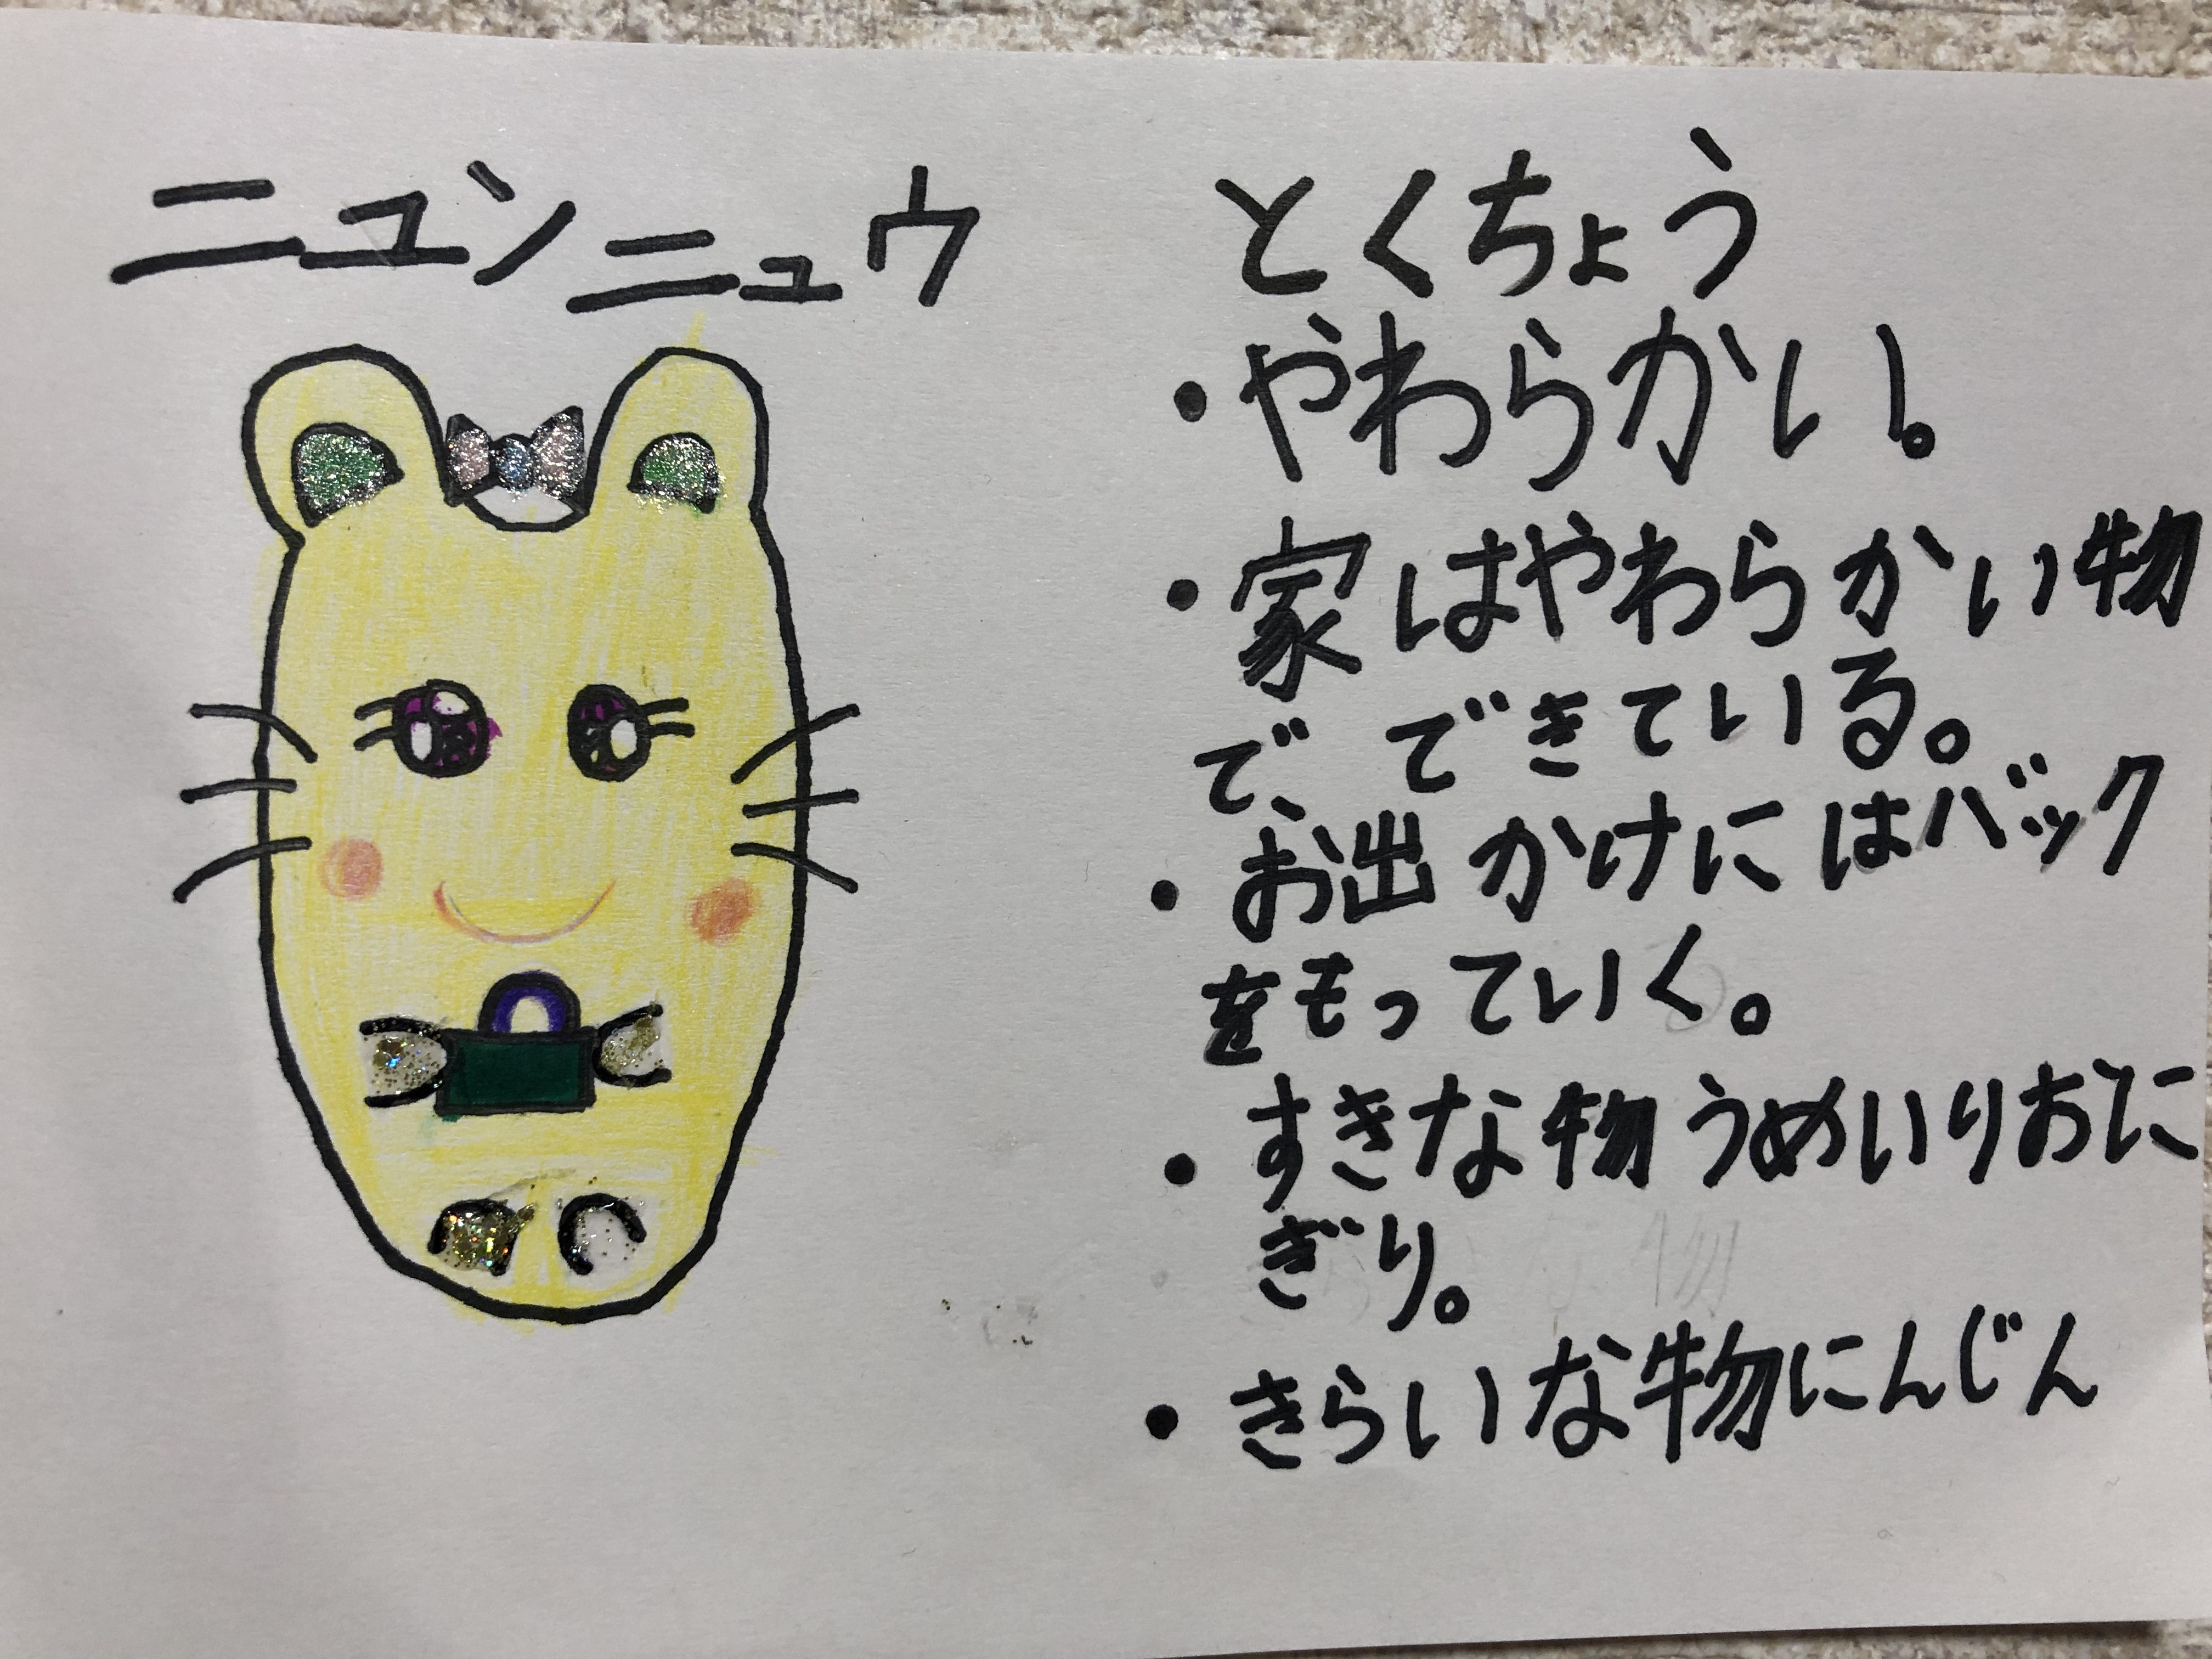 ニュンニュウ
とくちょう
・やわらかい。
・家はやわらかい物
で、できている。
・お出かけにはバック
をもっていく。
・すきな物うめいりおに
ぎり。
・きらいな物にんじん